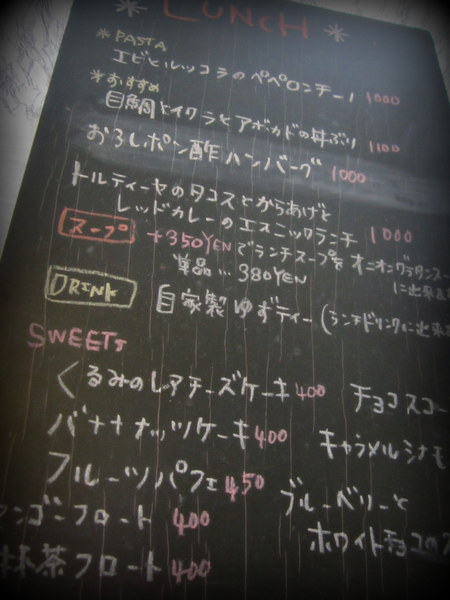 * LUNCH *
* PASTA
エビとルッコラのペペロンチーノ 1000
* おすすめ
目鯛とイクラとアボカドの丼ぶり 1100
おろしポン酢ハンバーグ 1000
トルティーヤのタコスとからあげと
レッドカレーのエスニックランチ 1000
スープ +350YENでランチスープをオニオングラタンスー
単品… 380YEN に出来ま
DRINK 自家製ゆずティー(ランチドリンクに出来ま
SWEETS
くるみのレアチーズケーキ 400 チョコスコー
バナナナッツケーキ 400 キャラメルシナモ
フルーツパフェ 450 ブルーベリーと
マンゴーフロート 400 ホワイトチョコの
抹茶フロート 400